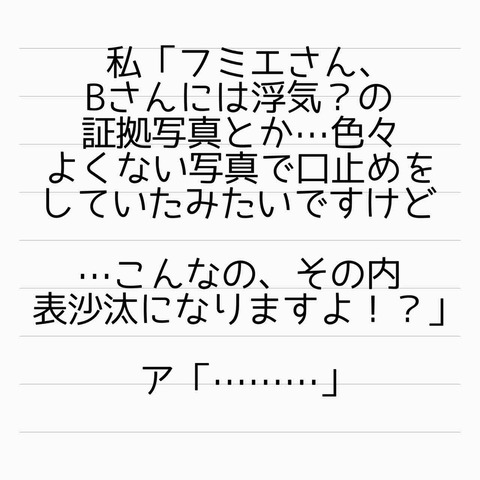 私「フミエさん、
Bさんには浮気？の
証拠写真とか…色々
よくない写真で口止めを
していたみたいですけど
…こんなの、その内
表沙汰になりますよ！？」
ア「………」